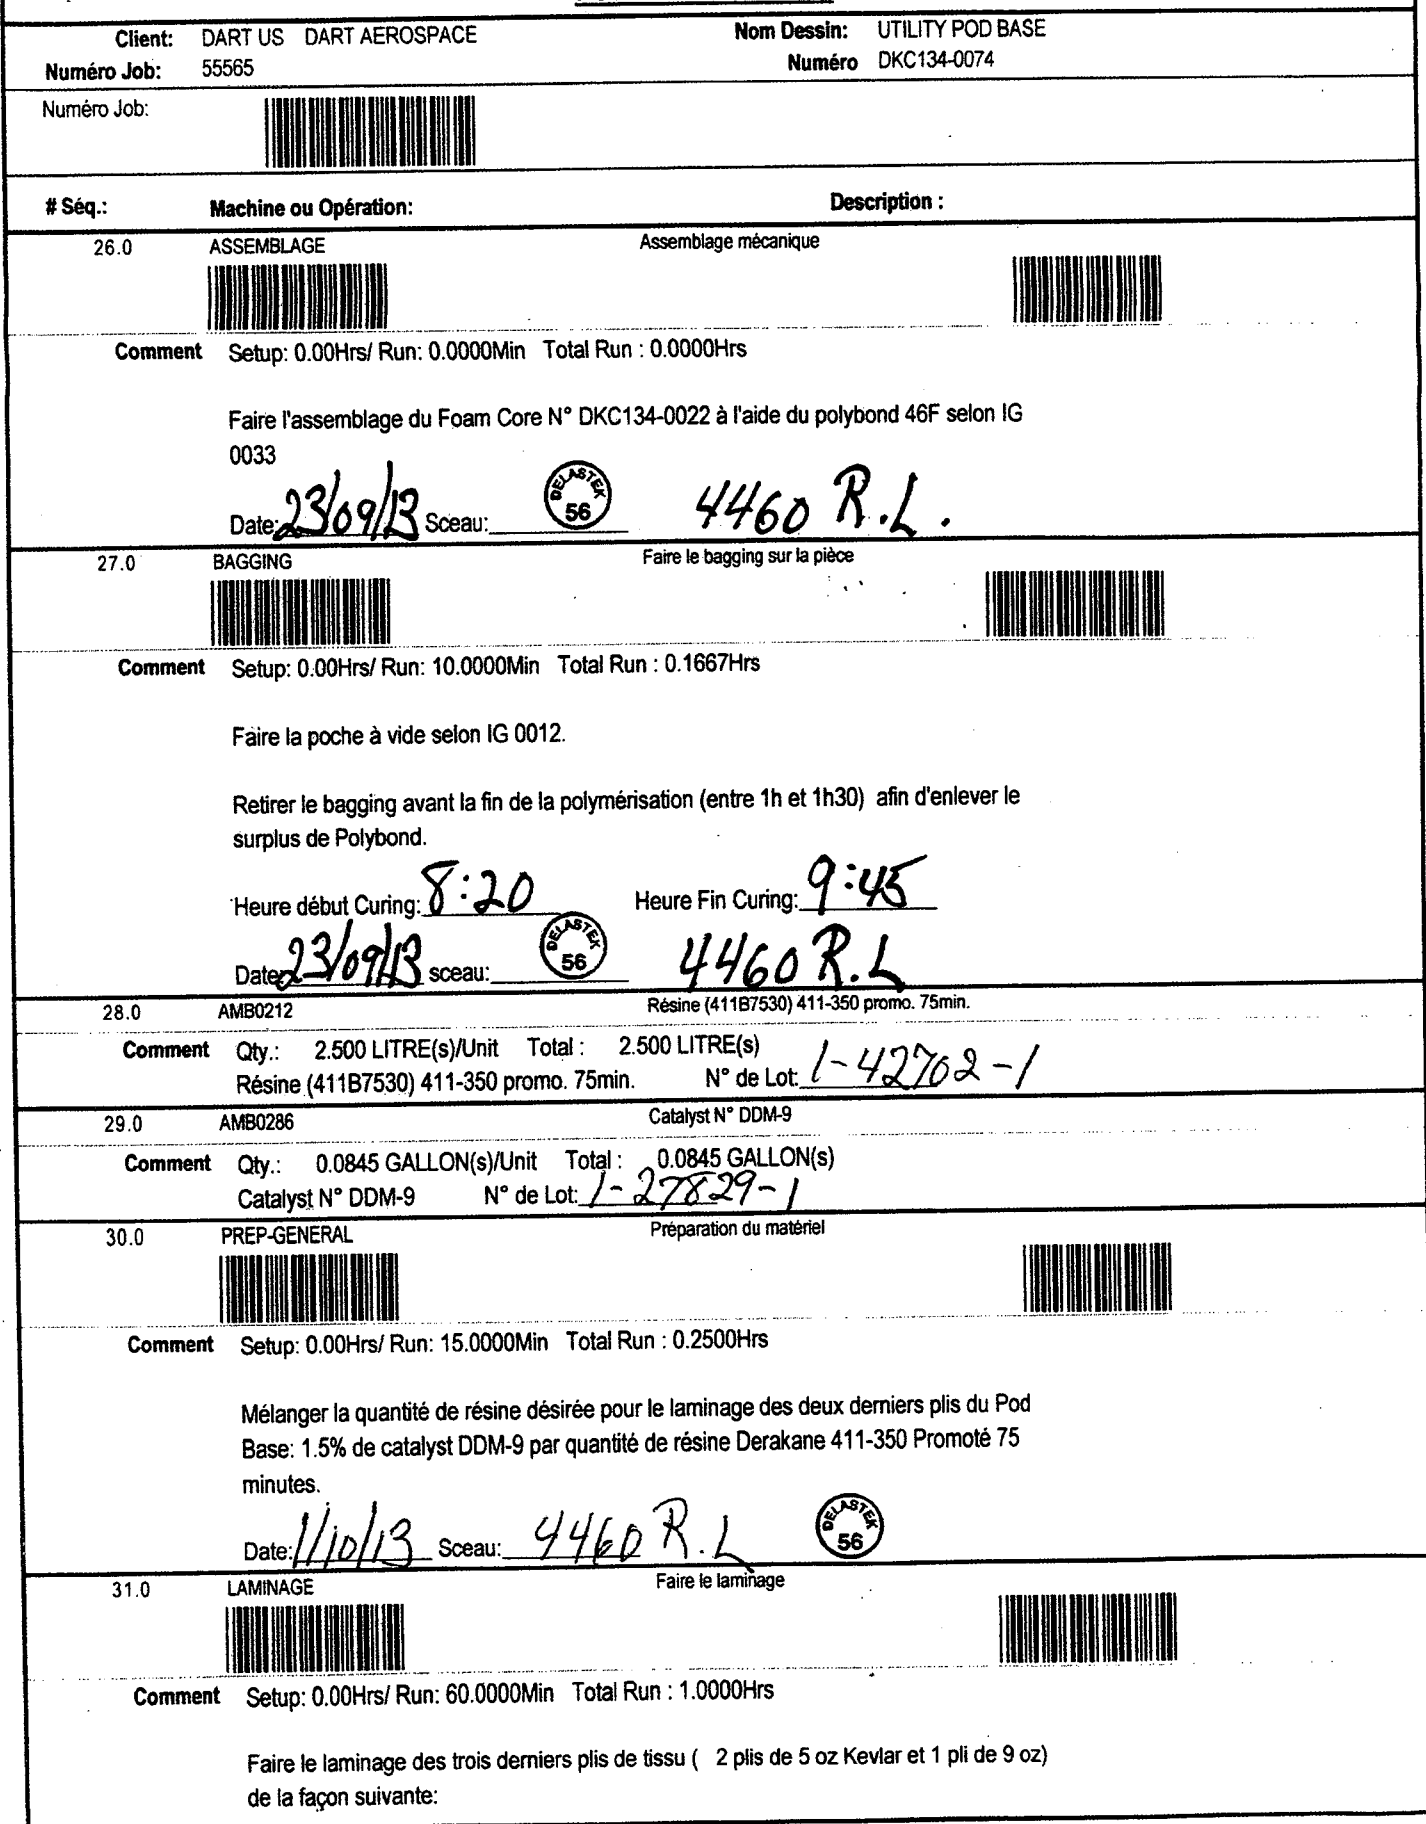 Client: DART US DART AEROSPACE Nom Dessin: UTILITY POD BASE
Numéro Job: 55565 Numéro DKC134-0074
Numéro Job:
# Séq.: Machine ou Opération: Description :
26.0 ASSEMBLAGE Assemblage mécanique
Comment Setup: 0.00Hrs/ Run: 0.0000Min Total Run : 0.0000Hrs
Faire l'assemblage du Foam Core N° DKC134-0022 à l'aide du polybond 46F selon IG
0033
Date: 23/09/13 Sceau: DELASTEK 56 4460 R.L.
27.0 BAGGING Faire le bagging sur la pièce
Comment Setup: 0.00Hrs/ Run: 10.0000Min Total Run : 0.1667Hrs
Faire la poche à vide selon IG 0012.
Retirer le bagging avant la fin de la polymérisation (entre 1h et 1h30) afin d'enlever le
surplus de Polybond.
Heure début Curing: 8:20 Heure Fin Curing: 9:45
Date: 23/09/13 sceau: DELASTEK 56 4460 R.L
28.0 AMB0212 Résine (411B7530) 411-350 promo. 75min.
Comment Qty.: 2.500 LITRE(s)/Unit Total : 2.500 LITRE(s)
Résine (411B7530) 411-350 promo. 75min. N° de Lot: 1-42702-1
29.0 AMB0286 Catalyst N° DDM-9
Comment Qty.: 0.0845 GALLON(s)/Unit Total : 0.0845 GALLON(s)
Catalyst N° DDM-9 N° de Lot: 1-27829-1
30.0 PREP-GENERAL Préparation du matériel
Comment Setup: 0.00Hrs/ Run: 15.0000Min Total Run : 0.2500Hrs
Mélanger la quantité de résine désirée pour le laminage des deux derniers plis du Pod
Base: 1.5% de catalyst DDM-9 par quantité de résine Derakane 411-350 Promoté 75
minutes.
Date: 1/10/13 Sceau: 4460 R.L DELASTEK 56
31.0 LAMINAGE Faire le laminage
Comment Setup: 0.00Hrs/ Run: 60.0000Min Total Run : 1.0000Hrs
Faire le laminage des trois derniers plis de tissu ( 2 plis de 5 oz Kevlar et 1 pli de 9 oz)
de la façon suivante: